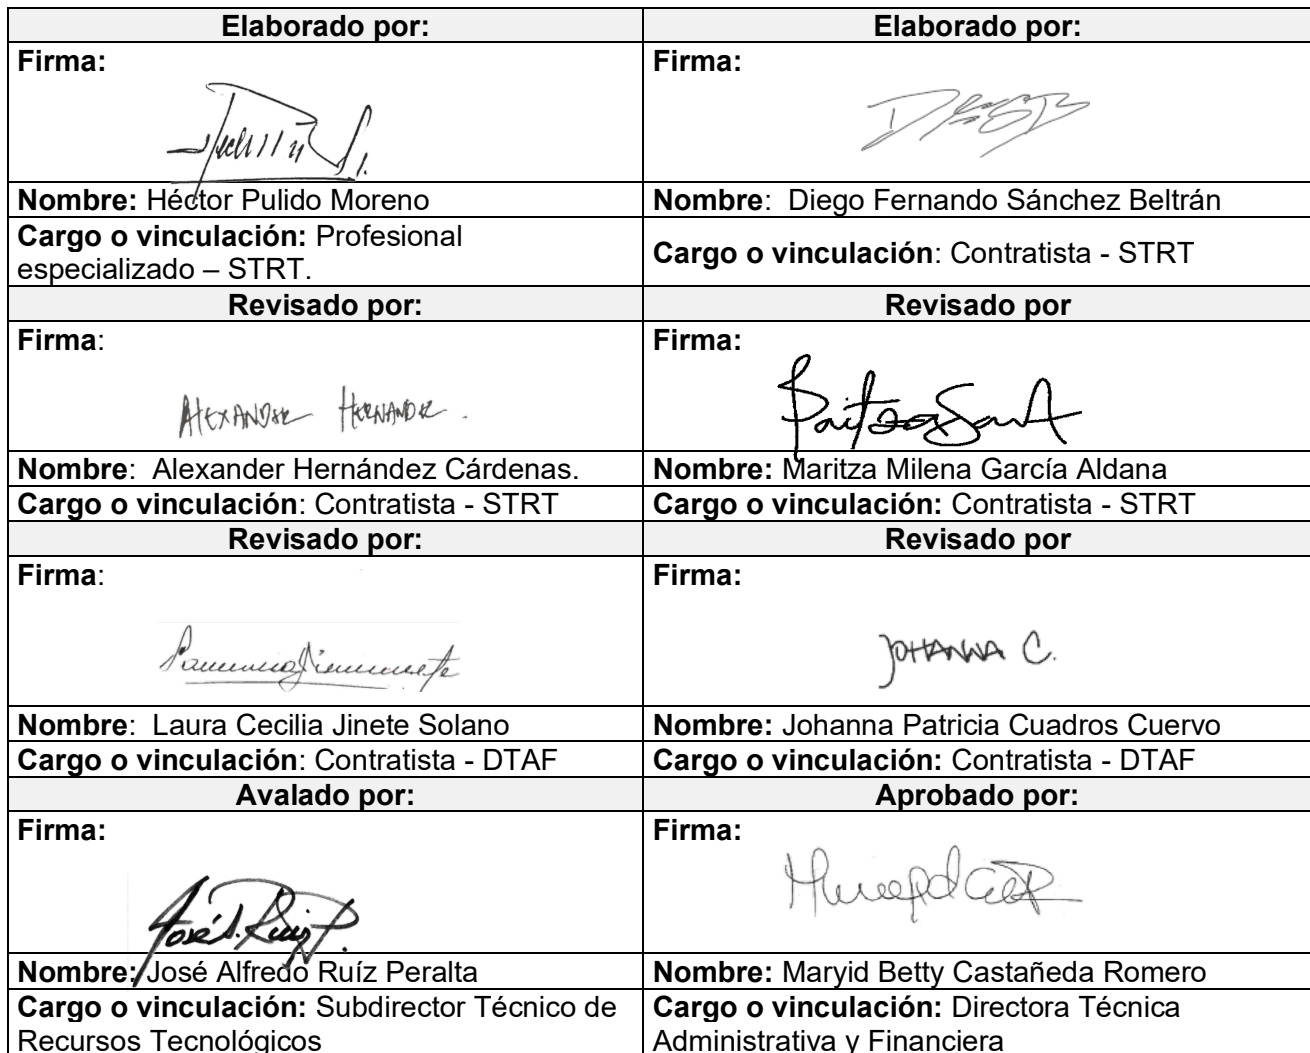 Elaborado por:
Elaborado por:
Firma:
Firma:
Nombre: Héctor Pulido Moreno
Nombre:  Diego Fernando Sánchez Beltrán
Cargo o vinculación: Profesional
especializado – STRT.
Cargo o vinculación: Contratista - STRT
Revisado por:
Revisado por
Firma:
ALEXANDER HERNANDEZ.
Firma:
Nombre:  Alexander Hernández Cárdenas.
Nombre: Maritza Milena García Aldana
Cargo o vinculación: Contratista - STRT
Cargo o vinculación: Contratista - STRT
Revisado por:
Revisado por
Firma:
Firma:
JOHANNA C.
Nombre:  Laura Cecilia Jinete Solano
Nombre: Johanna Patricia Cuadros Cuervo
Cargo o vinculación: Contratista - DTAF
Cargo o vinculación: Contratista - DTAF
Avalado por:
Aprobado por:
Firma:
José A. Ruiz P.
Firma:
Nombre: José Alfredo Ruíz Peralta
Nombre: Maryid Betty Castañeda Romero
Cargo o vinculación: Subdirector Técnico de
Recursos Tecnológicos
Cargo o vinculación: Directora Técnica
Administrativa y Financiera